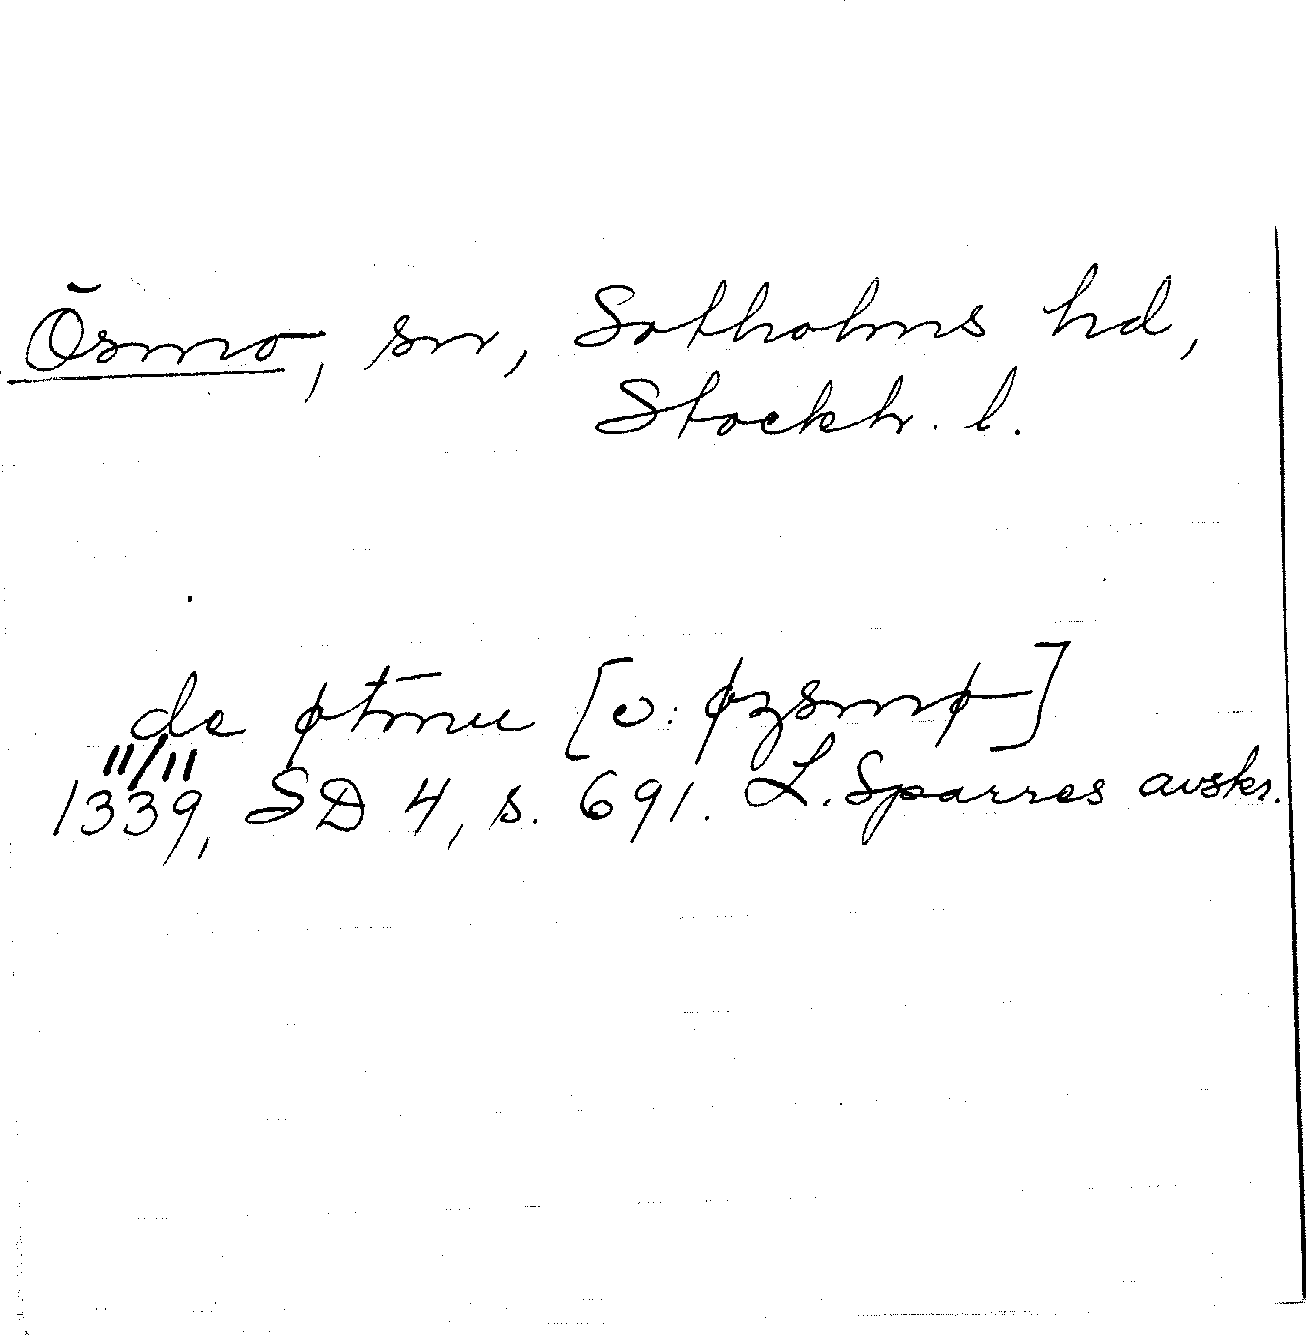 Ösmo, sn, Sotholms hd,
Stockh. l.
de øtmu [o: øzsmø]
11/11
1339, SD 4, s. 691. L. Sparres avskr.